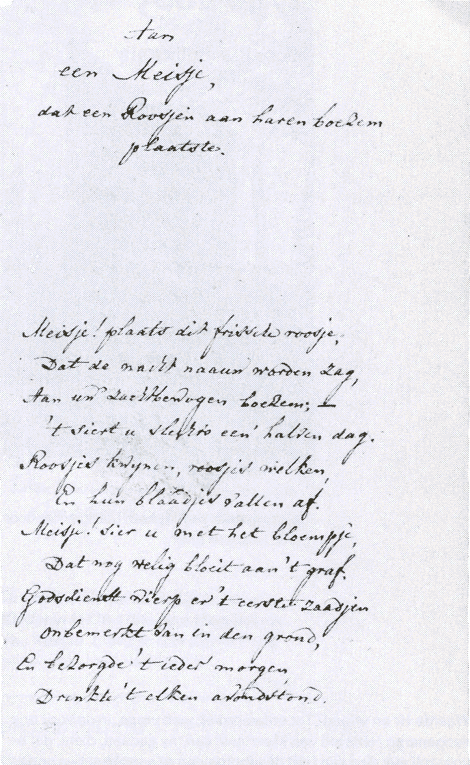 Aan
een Meisje,
dat een Roosjen aan haren boezem
plaatste.
Meisje! plaats dit frissche roosje,
Dat de nacht naauw worden zag,
Aan uw' zachtbewogen boezem; —
't siert u slechts een' halven dag.
Roosjes kwynen, roosjes welken,
En hun blaadjes vallen af.
Meisje! sier u met het bloempje,
Dat nog velig bloeit aan 't graf.
Godsdienst wierp er 't eerste zaadjen
onbemerkt van in den grond,
En bezorgde 't ieder morgen
Drenkte 't elken avondstond.